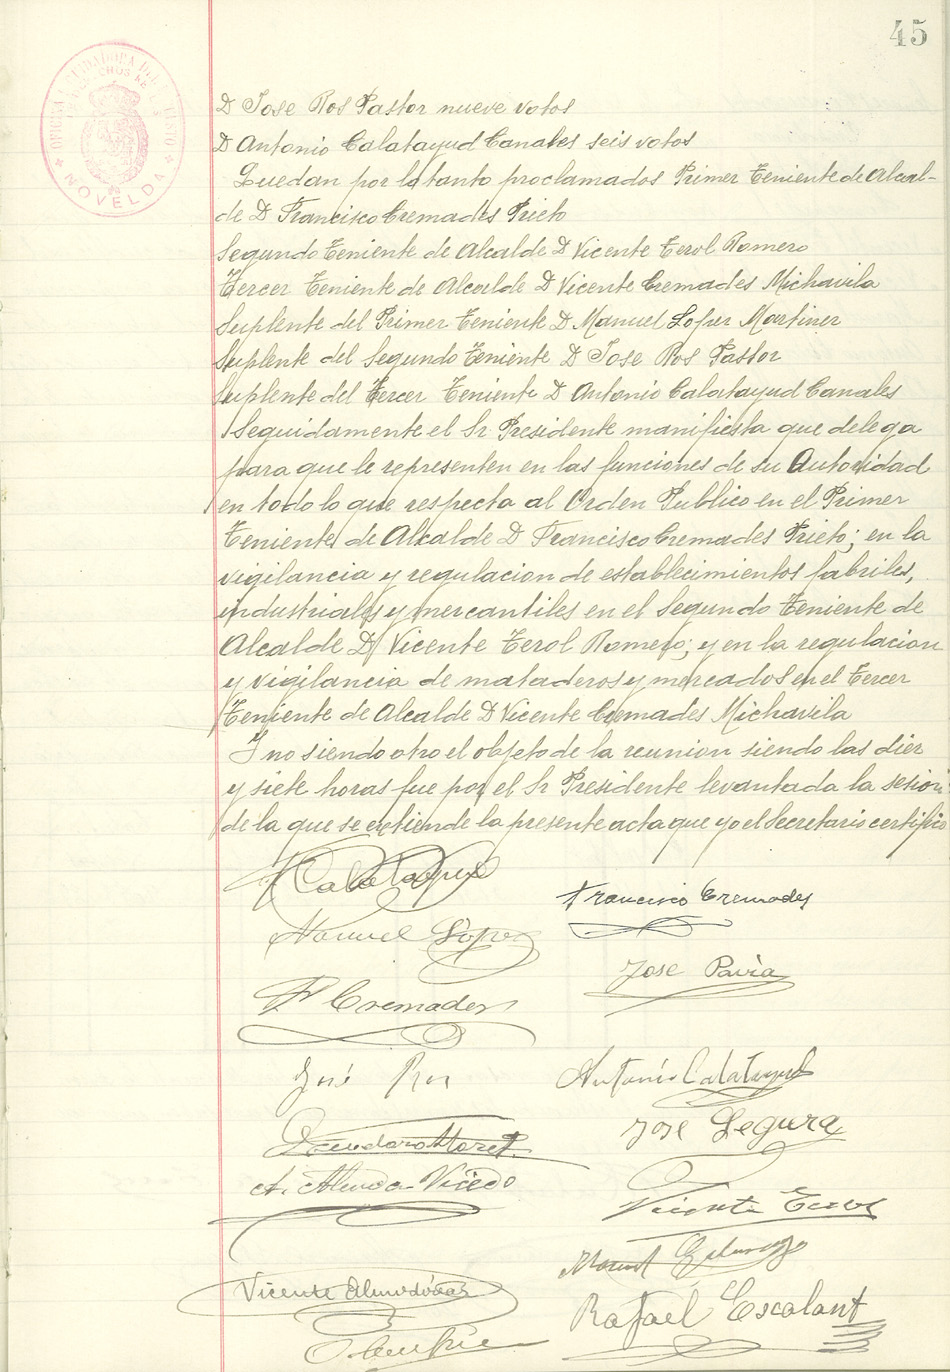 45
NOVELDA
D Jose Ros Pastor nueve votos
D Antonio Calatayud Canales seis votos
Quedan por lo tanto proclamados Primer Teniente de Alcal-
de D Francisco Cremades Prieto
Segundo Teniente de Alcalde D Vicente Terol Romero
Tercer Teniente de Alcalde D Vicente Cremades Michavila
Suplente del Primer Teniente D Manuel Lopez Martinez
Suplente del Segundo Teniente D Jose Ros Pastor
Suplente del Tercer Teniente D Antonio Calatayud Canales
Seguidamente el Sr Presidente manifiesta que delega
para que le representen en las funciones de su Autoridad
en todo lo que respecta al Orden Publico en el Primer
Teniente de Alcalde D Francisco Cremades Prieto; en la
vigilancia y regulacion de establecimientos fabriles,
industriales y mercantiles en el Segundo Teniente de
Alcalde D Vicente Terol Romero; y en la regulacion
y vigilancia de mataderos y mercados en el Tercer
Teniente de Alcalde D Vicente Cremades Michavila
Y no siendo otro el objeto de la reunion siendo las diez
y siete horas fue por el Sr Presidente levantada la sesion
de la que se extiende la presente acta que yo el Secretario certifico
Francisco Cremades
Manuel Lopez
Jose Pavia
V Cremades
José Ros
Antonio Calatayud
Jose Segura
A. Vicedo
Vicente Terol
Vicente
Rafael Escalant